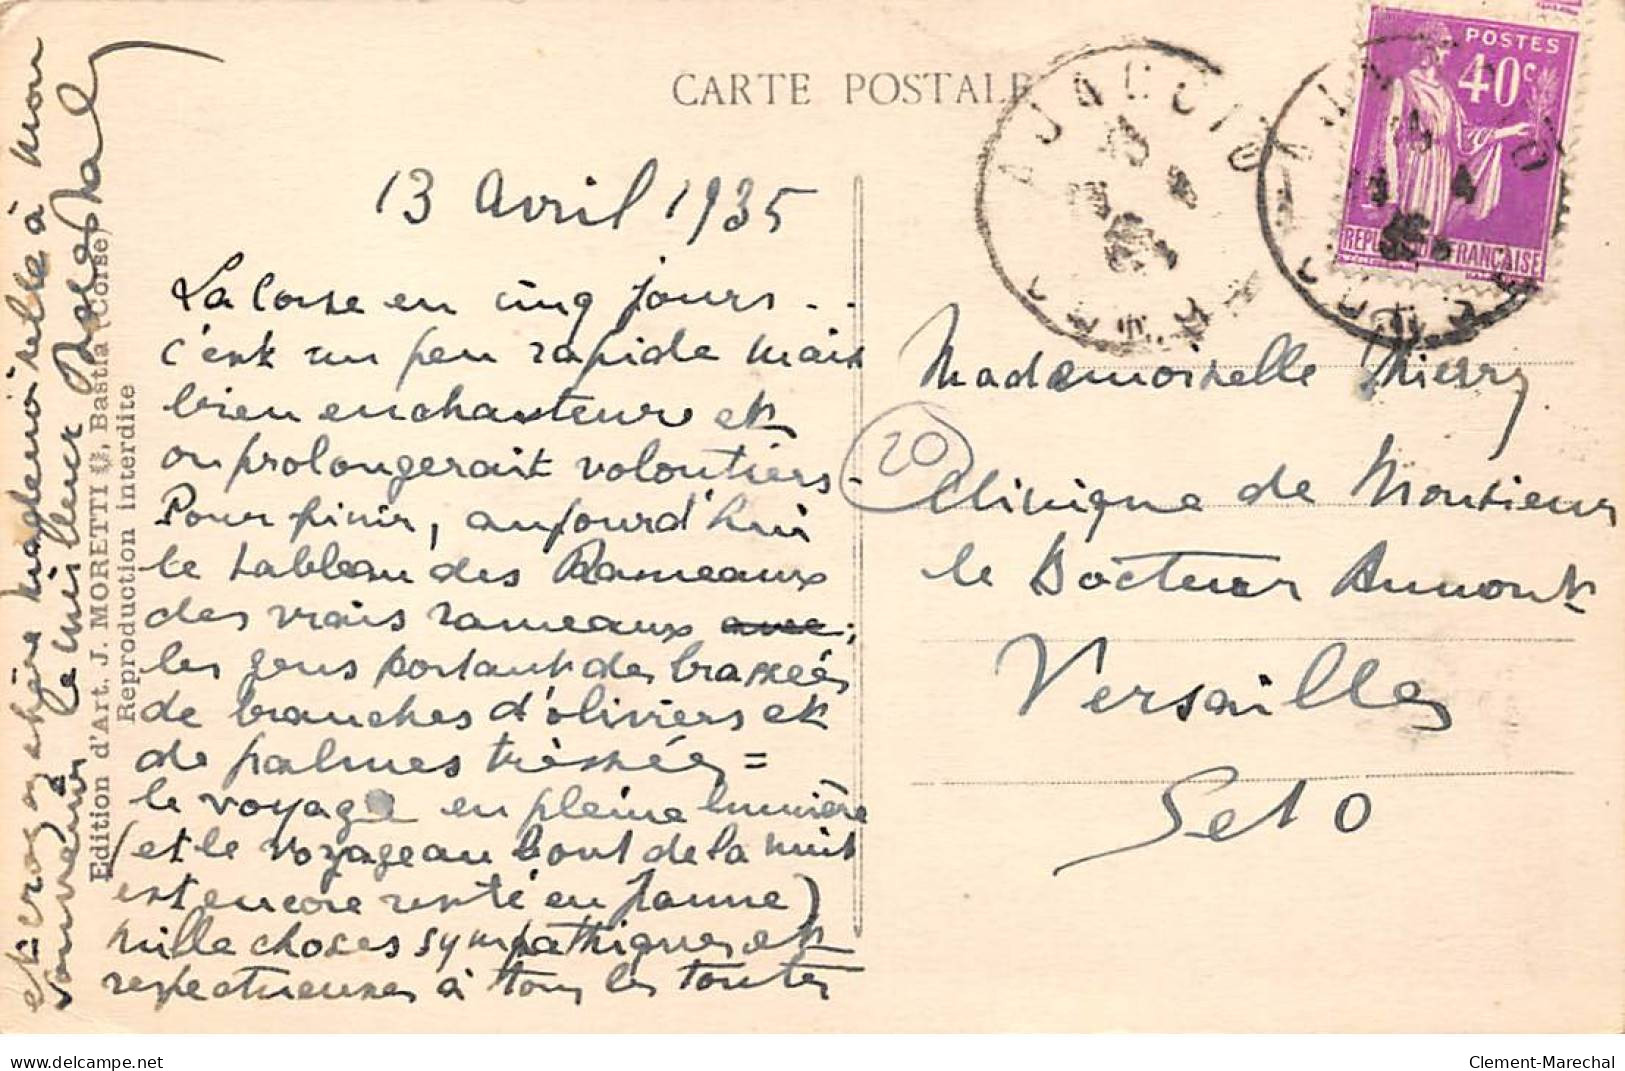 CARTE POSTALE
POSTES
40c
RÉPUBLIQUE FRANÇAISE
AJACCIO
13 avril 1935
La Corse en cinq jours - -
c'est un peu rapide mais
bien enchanteur et
on prolongerait volontiers -
Pour finir, aujourd'hui
le tableau des Rameaux
des vrais rameaux avec,
les gens portant des brassées
de branches d'oliviers et
de palmes tressées =
le voyage en pleine lumière
(et le voyage au bout de la nuit
est encore resté en panne)
mille choses sympathiques et
respectueuses à tous les toutes
et croyez chère mademoiselle à mon
souvenir le meilleur
Edition d'Art. J. MORETTI, Bastia (Corse)
Reproduction interdite
20
Mademoiselle Thierry
Clinique de Monsieur
le Docteur Aumont
Versailles
Set O
delcampe.net
Clement-Marechal